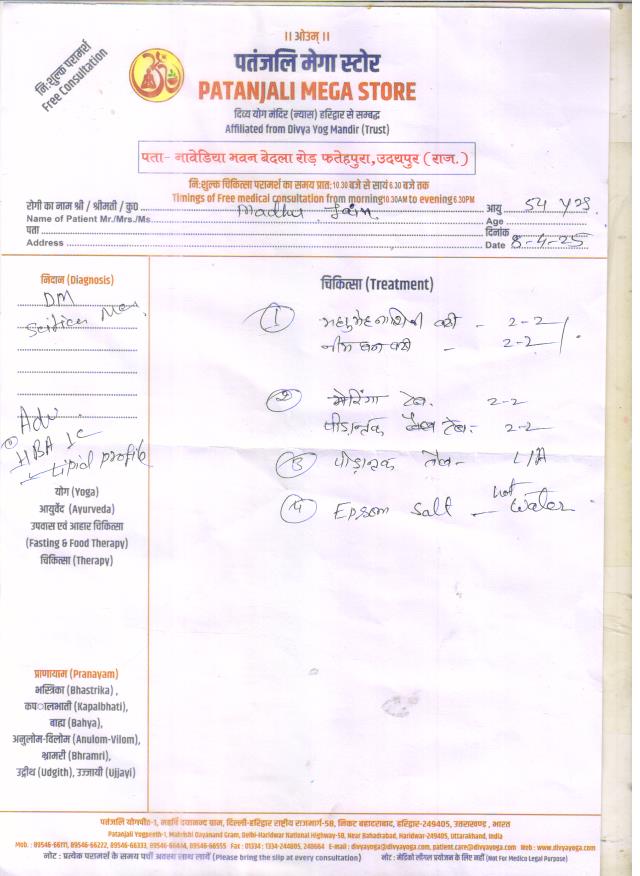 ।। ओउम् ।।
नि:शुल्क परामर्श
Free Consultation
पतंजलि मेगा स्टोर
PATANJALI MEGA STORE
दिव्य योग मंदिर (न्यास) हरिद्वार से सम्बद्ध
Affiliated from Divya Yog Mandir (Trust)
पता- नावेडिया भवन बेदला रोड़ फतेहपुरा, उदयपुर (राज.)
नि:शुल्क चिकित्सा परामर्श का समय प्रात: 10.30 बजे से सायं 6.30 बजे तक
Timings of Free medical consultation from morning 10.30AM to evening 6.30PM
रोगी का नाम श्री / श्रीमती / कु0 आयु 54 yrs
Name of Patient Mr./Mrs./Ms Madhu Jain Age
पता दिनांक
Address Date 8-4-25
निदान (Diagnosis)
DM
Adv
HBA1c
Lipid profile
योग (Yoga)
आयुर्वेद (Ayurveda)
उपवास एवं आहार चिकित्सा
(Fasting & Food Therapy)
चिकित्सा (Therapy)
प्राणायाम (Pranayam)
भस्त्रिका (Bhastrika) ,
कपालभाती (Kapalbhati),
बाह्य (Bahya),
अनुलोम-विलोम (Anulom-Vilom),
भ्रामरी (Bhramri),
उद्गीथ (Udgith), उज्जायी (Ujjayi)
चिकित्सा (Treatment)
① मधुमेहनाशिनी वटी - 2-2
नीम घन वटी - 2-2
② मोरिंगा टेब. 2-2
पीड़ान्तक टेब. 2-2
③ पीड़ान्तक तैल - L/A
④ Epsom Salt - hot water
पतंजलि योगपीठ-1, महर्षि दयानन्द ग्राम, दिल्ली-हरिद्वार राष्ट्रीय राजमार्ग-58, निकट बहादराबाद, हरिद्वार-249405, उत्तराखण्ड , भारत
Patanjali Yogpeeth-1, Mahrishi Dayanand Gram, Delhi-Haridwar National Highway-58, Near Bahadrabad, Haridwar-249405, Uttarakhand, India
Mob. : 89546-66111, 89546-66222, 89546-66333, 89546-66444, 89546-66555 Fax : 01334 : 1334-244805, 240664 E-mail : divyayoga@divyayoga.com, patient.care@divyayoga.com, Web : www.divyayoga.com
नोट : प्रत्येक परामर्श के समय पर्ची अवश्य साथ लायें (Please bring the slip at every consultation) नोट : मेडिको लीगल प्रयोजन के लिए नहीं (Not For Medico Legal Purpose)